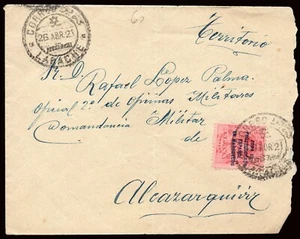 60
CORREOS
26 ABR.21
LARACHE
Territorio
S. D.
Rafael Lopez Palma
Oficial 2º de Oficinas Militares
Comandancia Militar
de
Alcazarquivir